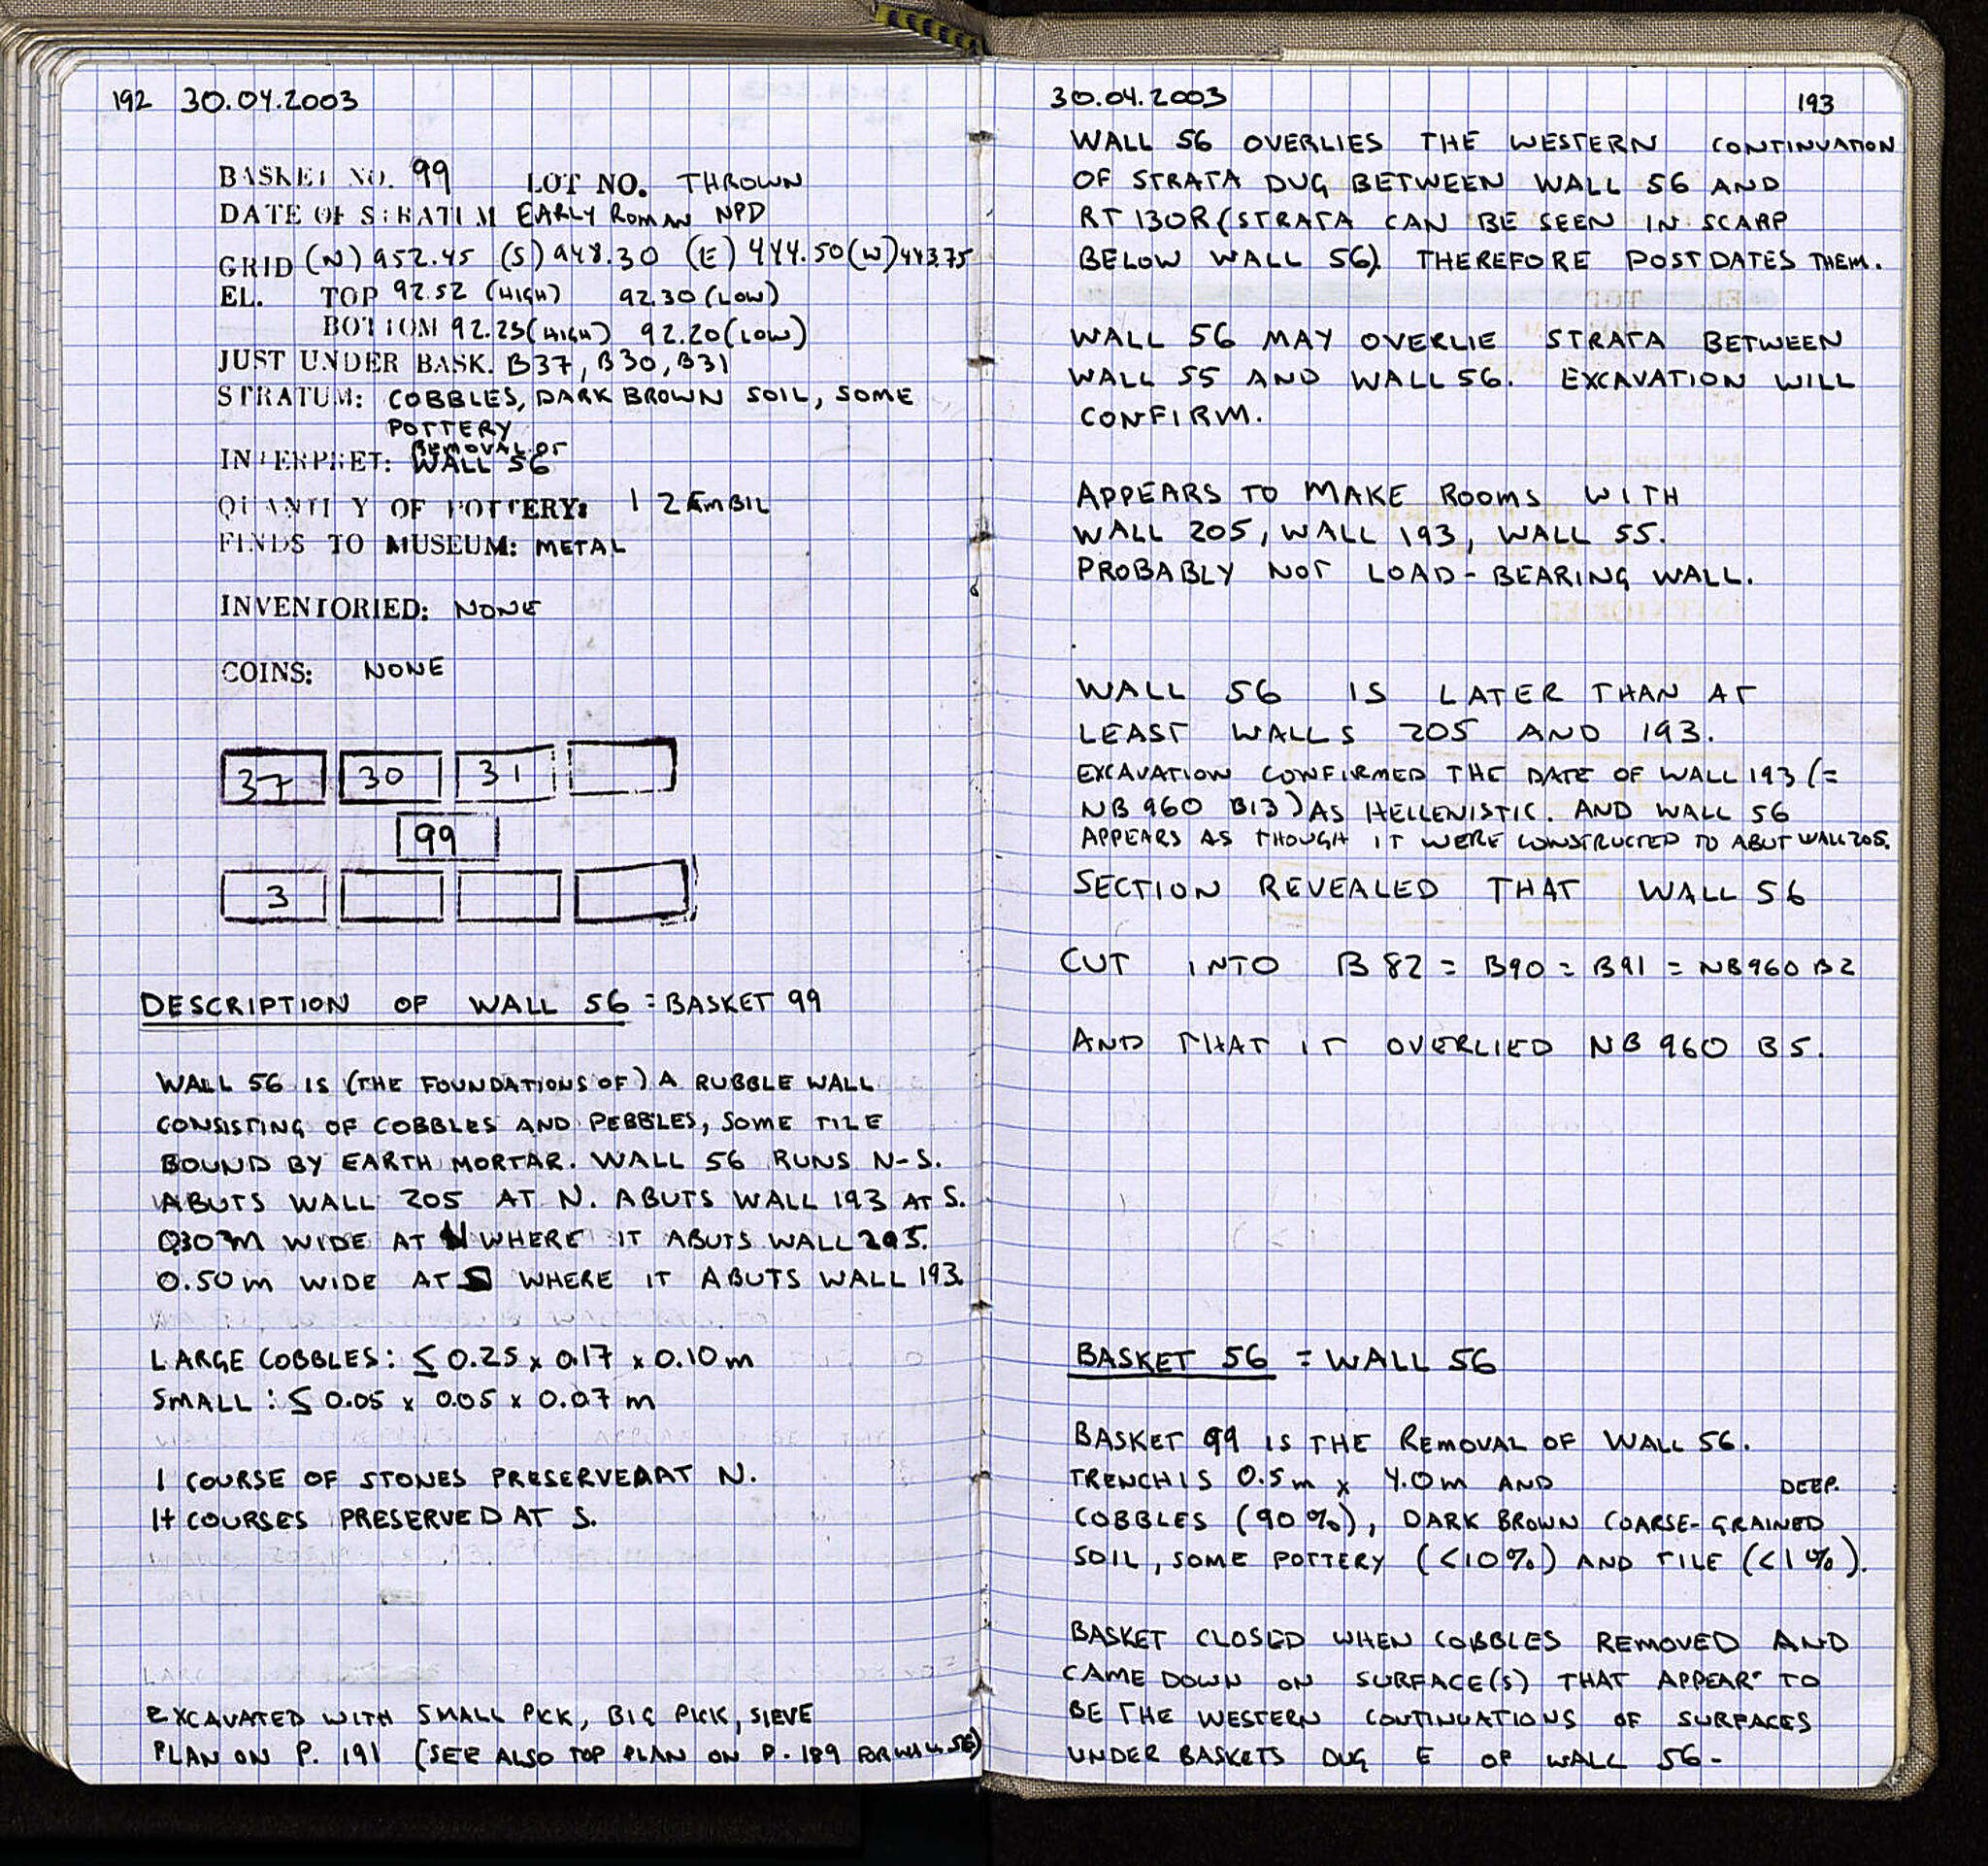 192 30.04.2003
BASKET NO. 99 LOT NO. THROWN
DATE OF STRATUM EARLY ROMAN NPD
GRID (N) 952.45 (S) 948.30 (E) 444.50 (W) 443.75
EL. TOP 92.52 (HIGH) 92.30 (LOW)
BOTTOM 92.25 (HIGH) 92.20 (LOW)
JUST UNDER BASK. B37, B30, B31
STRATUM: COBBLES, DARK BROWN SOIL, SOME
POTTERY
REMOVAL OF
INTERPRET: WALL 56
QUANTITY OF POTTERY: 1 ZEMBIL
FINDS TO MUSEUM: METAL
INVENTORIED: NONE
COINS: NONE
37 30 31
99
3
DESCRIPTION OF WALL 56 = BASKET 99
WALL 56 IS (THE FOUNDATIONS OF) A RUBBLE WALL
CONSISTING OF COBBLES AND PEBBLES, SOME TILE
BOUND BY EARTH MORTAR. WALL 56 RUNS N-S.
ABUTS WALL 205 AT N. ABUTS WALL 193 AT S.
0.30 M WIDE AT N WHERE IT ABUTS WALL 205.
0.50 m WIDE AT S WHERE IT ABUTS WALL 193.
LARGE COBBLES: ≤ 0.25 x 0.17 x 0.10 m
SMALL : ≤ 0.05 x 0.05 x 0.07 m
1 COURSE OF STONES PRESERVED AT N.
1+ COURSES PRESERVED AT S.
EXCAVATED WITH SMALL PCK, BIG PICK, SIEVE
PLAN ON P. 191 (SEE ALSO TOP PLAN ON P. 189 FOR WALL 56)
30.04.2003 193
WALL 56 OVERLIES THE WESTERN CONTINUATION
OF STRATA DUG BETWEEN WALL 56 AND
RT 130R (STRATA CAN BE SEEN IN SCARP
BELOW WALL 56). THEREFORE POSTDATES THEM.
WALL 56 MAY OVERLIE STRATA BETWEEN
WALL 55 AND WALL 56. EXCAVATION WILL
CONFIRM.
APPEARS TO MAKE ROOMS WITH
WALL 205, WALL 193, WALL 55.
PROBABLY NOT LOAD-BEARING WALL.
WALL 56 IS LATER THAN AT
LEAST WALLS 205 AND 193.
EXCAVATION CONFIRMED THE DATE OF WALL 193 (=
NB 960 B13) AS HELLENISTIC. AND WALL 56
APPEARS AS THOUGH IT WERE CONSTRUCTED TO ABUT WALL 205.
SECTION REVEALED THAT WALL 56
CUT INTO B 82 = B90 = B91 = NB960 B2
AND THAT IT OVERLIED NB 960 B5.
BASKET 56 = WALL 56
BASKET 99 IS THE REMOVAL OF WALL 56.
TRENCH IS 0.5m x 4.0m AND DEEP.
COBBLES (90%), DARK BROWN COARSE-GRAINED
SOIL, SOME POTTERY (<10%) AND TILE (<1%).
BASKET CLOSED WHEN COBBLES REMOVED AND
CAME DOWN ON SURFACE(S) THAT APPEAR TO
BE THE WESTERN CONTINUATIONS OF SURFACES
UNDER BASKETS DUG E OF WALL 56.